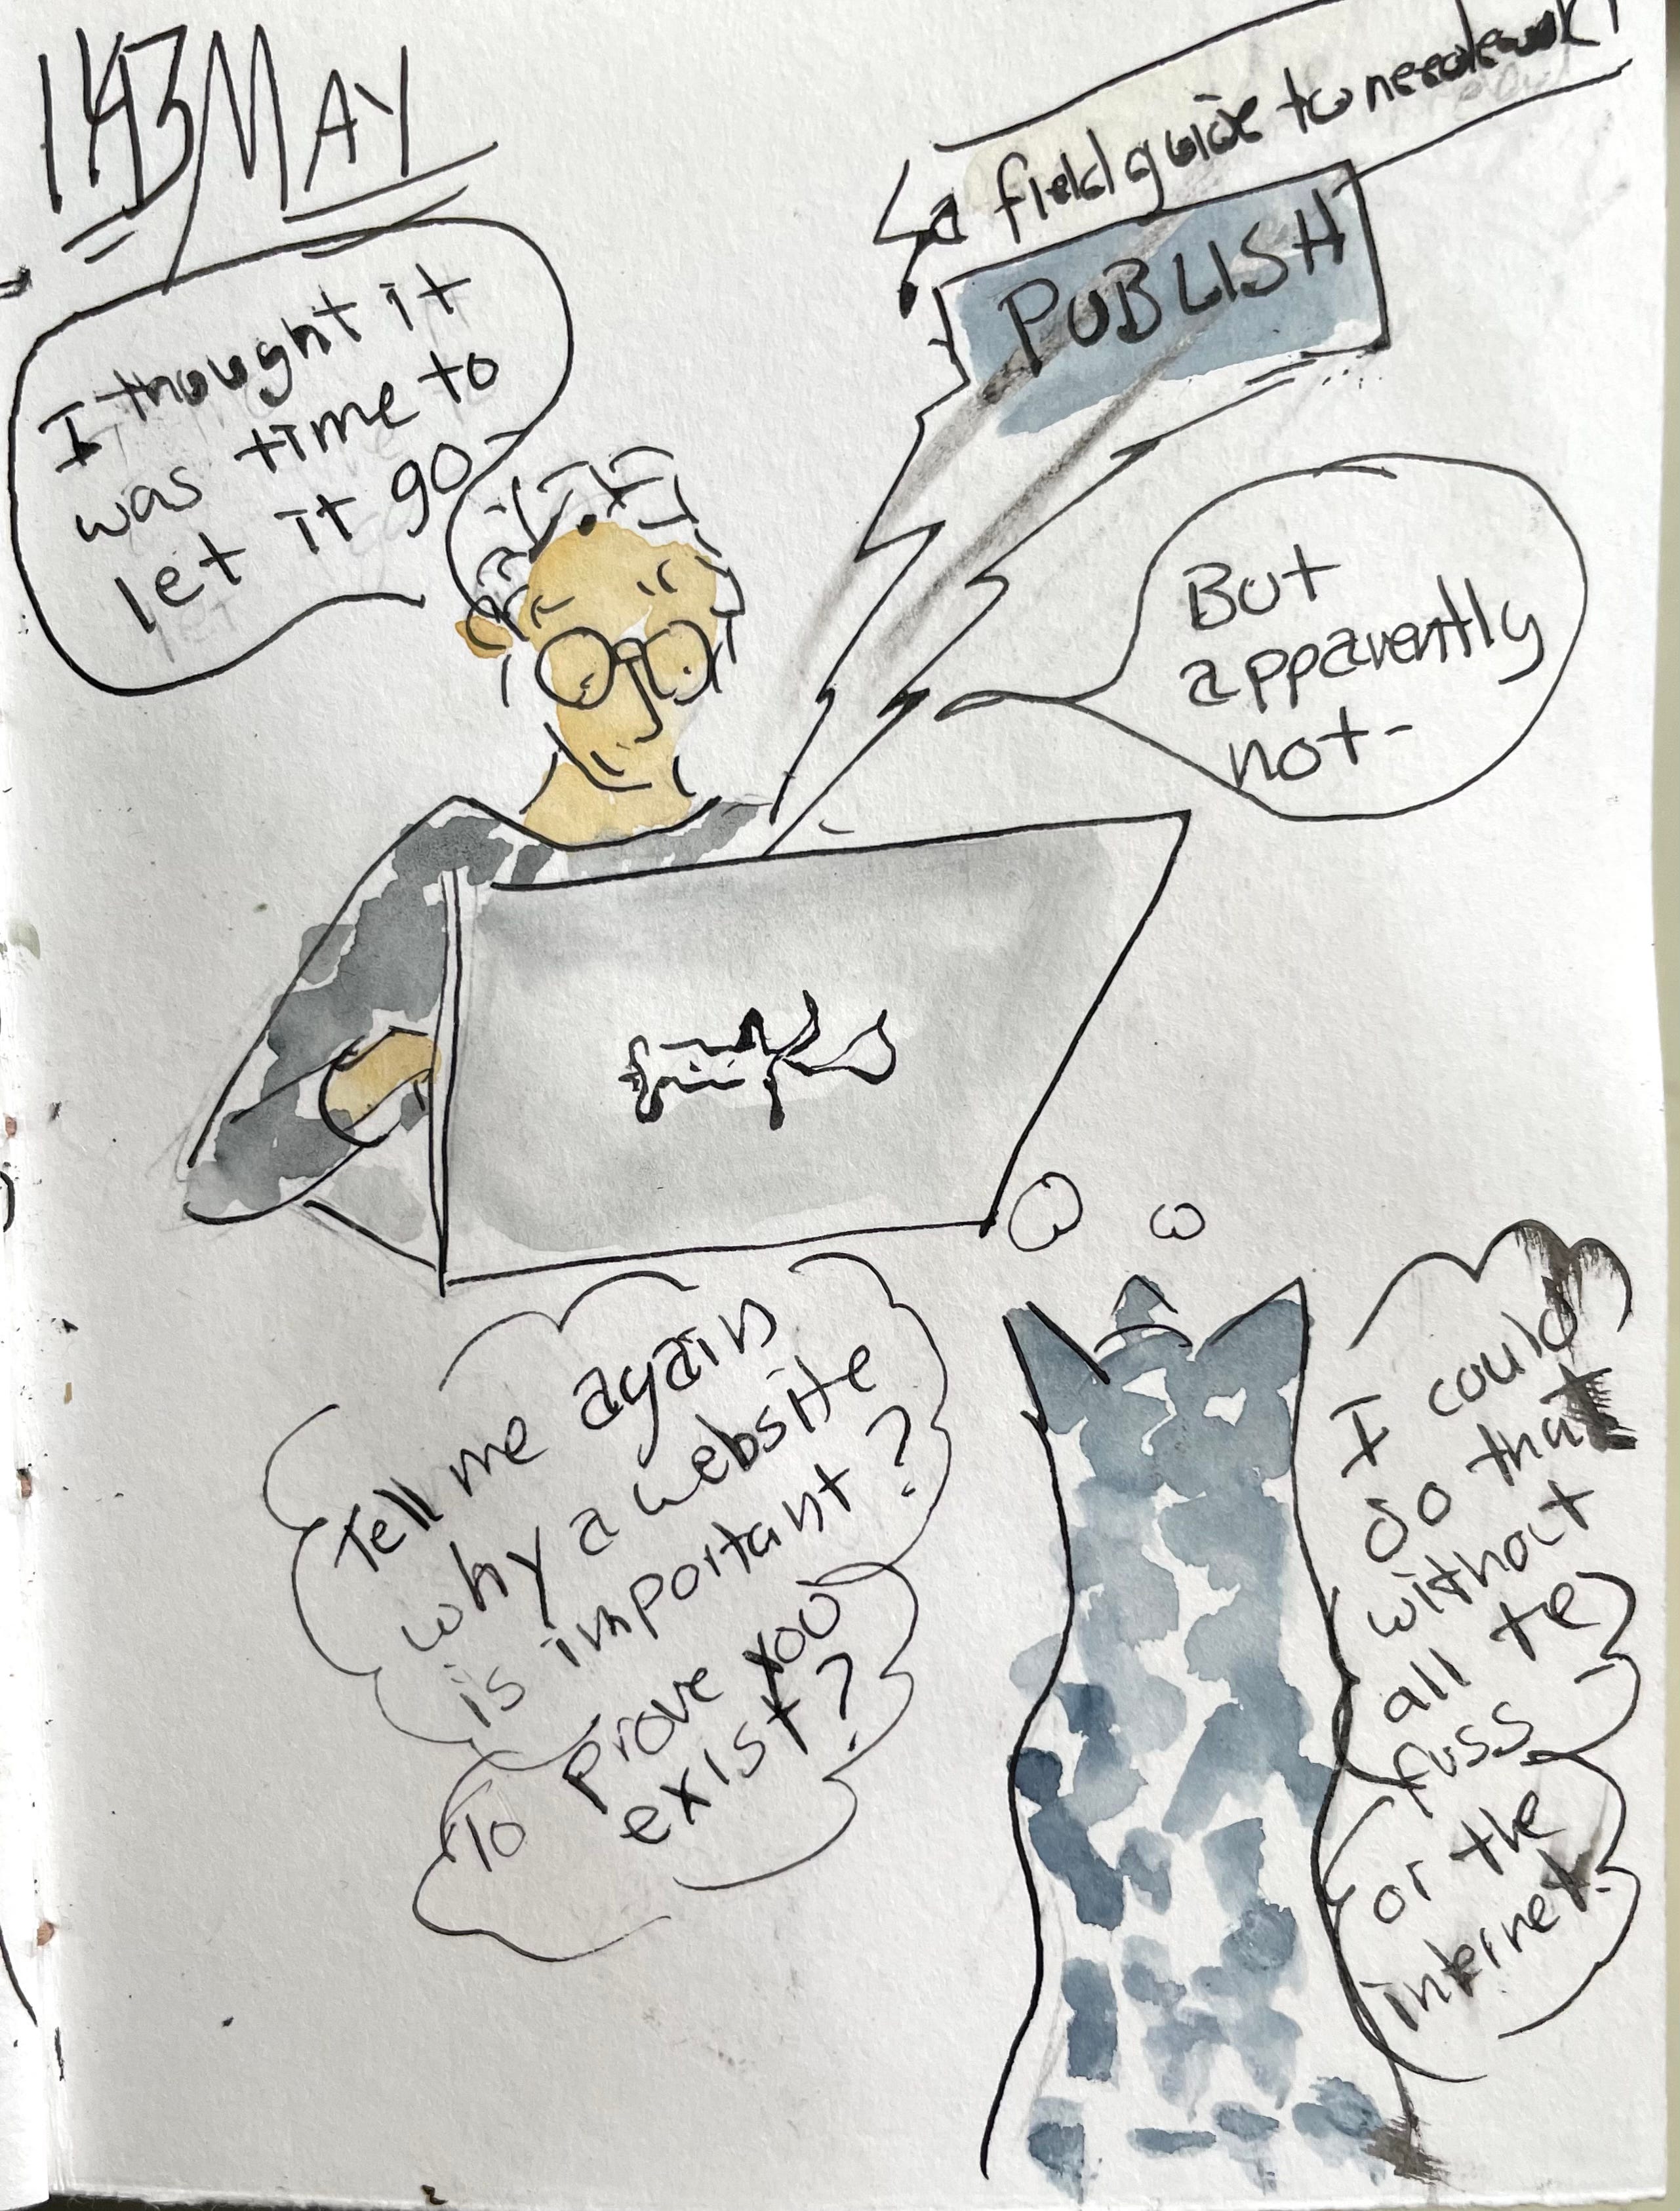 143 MAY
a field guide to needlework!
PUBLISH
I thought it
was time to
let it go
But
apparently
not-
Tell me again
why a website
is important?
To prove you
exist?
I could
do that
without
all the
fuss
or the
internet.